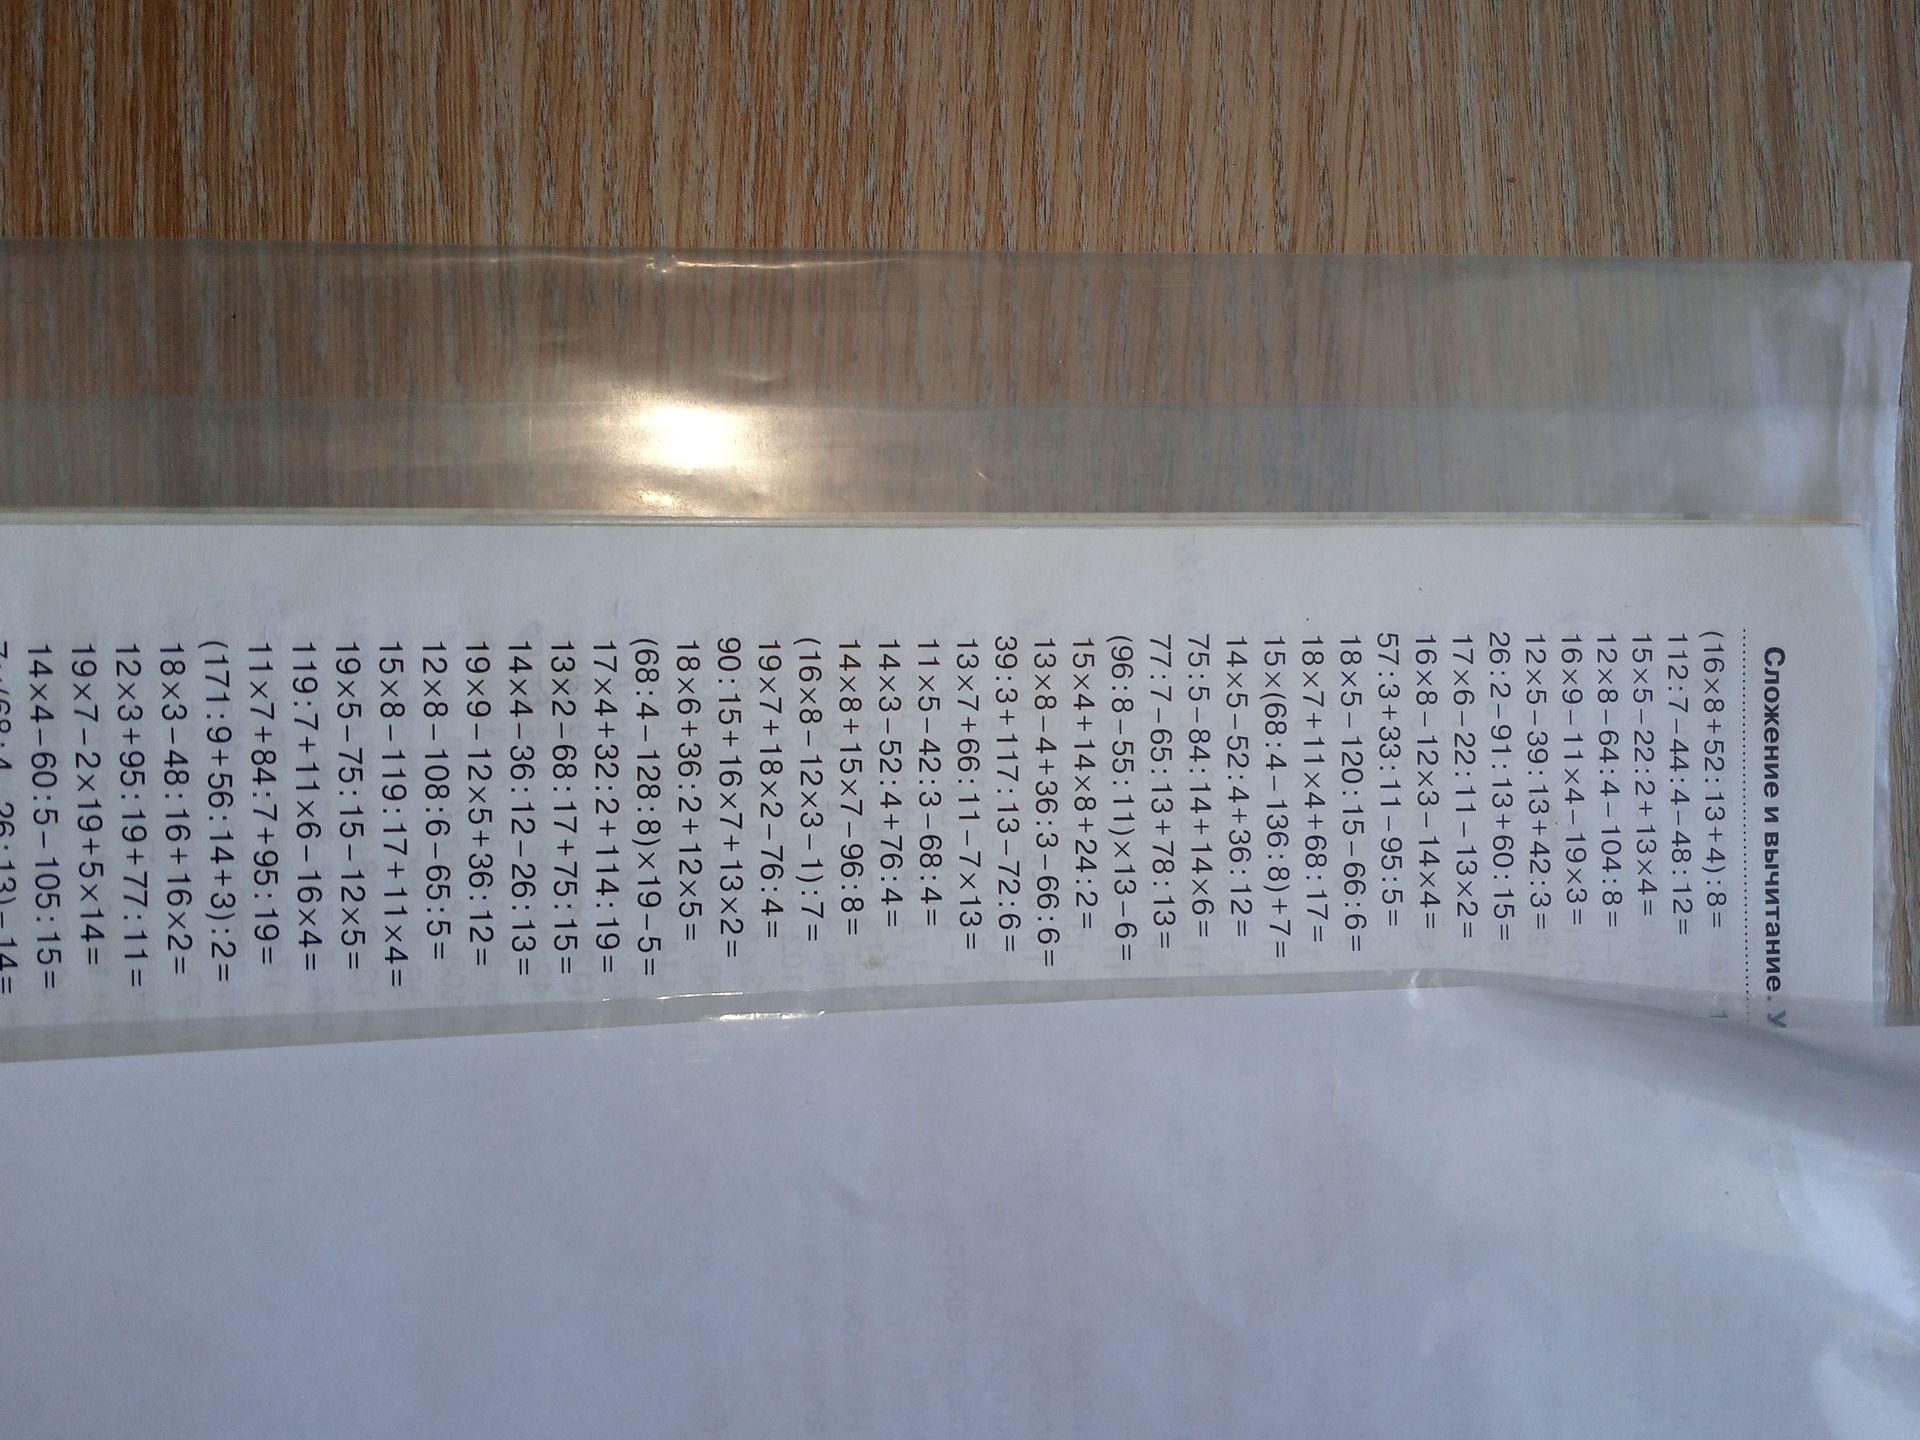 Сложение и вычитание. У
(16×8+52:13+4):8=
112:7−44:4−48:12=
15×5−22:2+13×4=
12×8−64:4−104:8=
16×9−11×4−19×3=
12×5−39:13+42:3=
26:2−91:13+60:15=
17×6−22:11−13×2=
16×8−12×3−14×4=
57:3+33:11−95:5=
18×5−120:15−66:6=
18×7+11×4+68:17=
15×(68:4−136:8)+7=
14×5−52:4+36:12=
75:5−84:14+14×6=
77:7−65:13+78:13=
(96:8−55:11)×13−6=
15×4+14×8+24:2=
13×8−4+36:3−66:6=
39:3+117:13−72:6=
13×7+66:11−7×13=
11×5−42:3−68:4=
14×3−52:4+76:4=
14×8+15×7−96:8=
(16×8−12×3−1):7=
19×7+18×2−76:4=
90:15+16×7+13×2=
18×6+36:2+12×5=
(68:4−128:8)×19−5=
17×4+32:2+114:19=
13×2−68:17+75:15=
14×4−36:12−26:13=
19×9−12×5+36:12=
12×8−108:6−65:5=
15×8−119:17+11×4=
19×5−75:15−12×5=
119:7+11×6−16×4=
11×7+84:7+95:19=
(171:9+56:14+3):2=
18×3−48:16+16×2=
12×3+95:19+77:11=
19×7−2×19+5×14=
14×4−60:5−105:15=